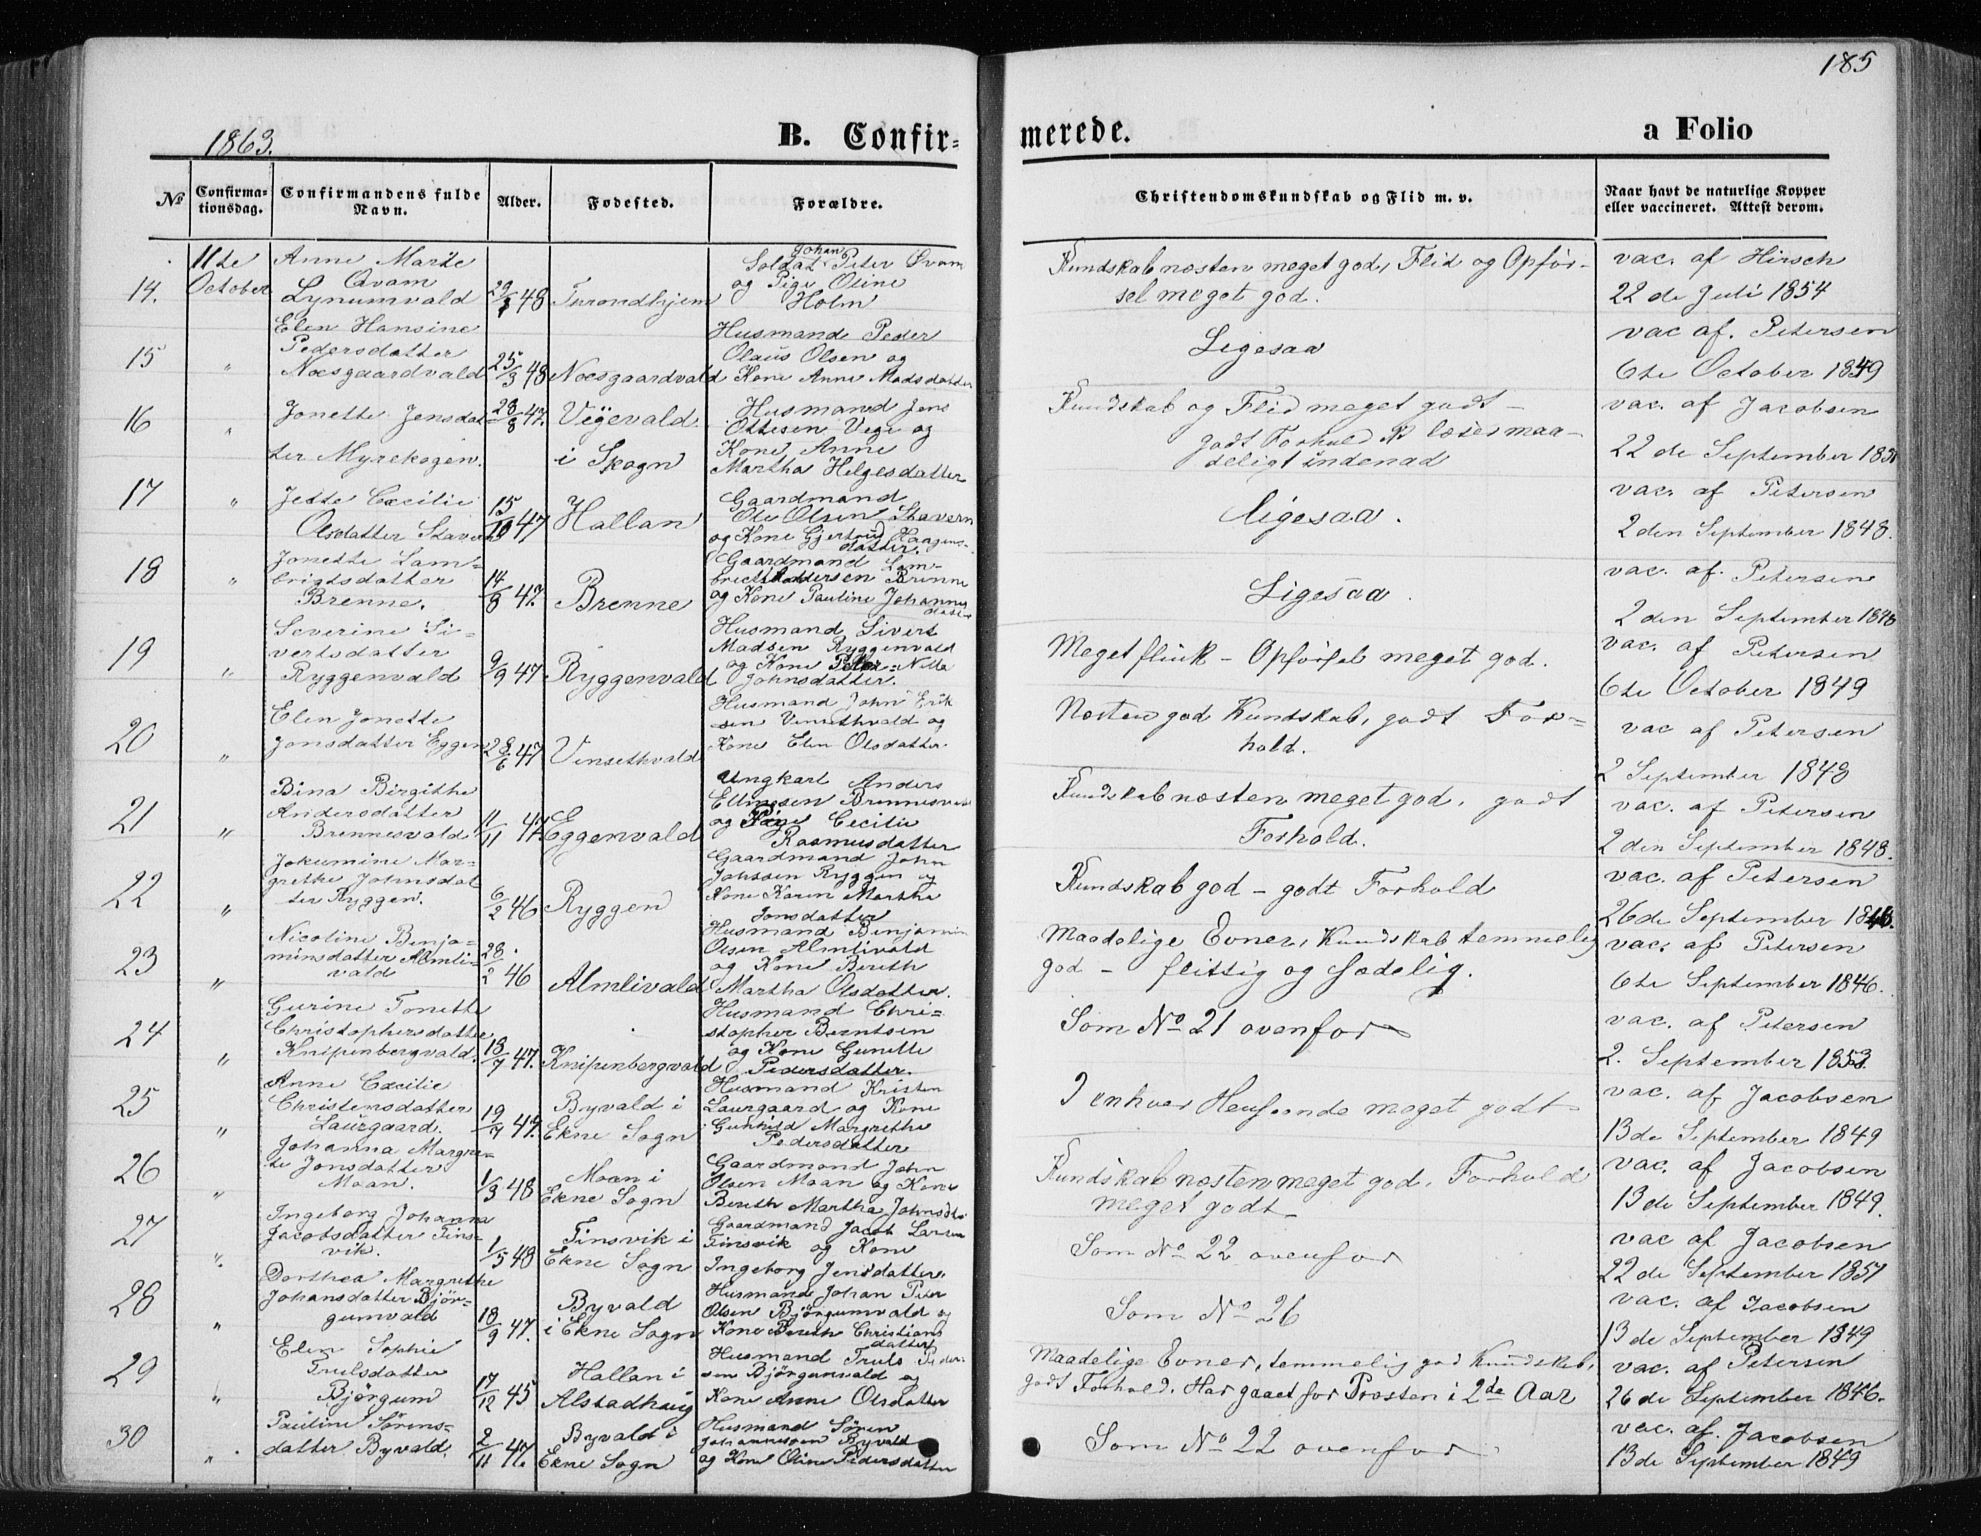 185
1863.
B. Confir-
merede.
a Folio
No
Confirma-
tionsdag.
Confirmandens fulde
Navn.
Alder.
Fodested.
Forældre.
Christendomskundskab og Flid m. v.
Naar havt de naturlige Kopper
eller vaccineret. Attest derom.
14.
11te
October
Anne Marie
Qvam
Lynumvald
29/1 48
Trondhjem
Johan
Soldat Peter Qvam
og Pige Oline
Holm
Kundskab næsten meget god, Flid og Opfør-
sel meget god.
vac. af Hirsch
22de Juli 1854
15
"
Elen Hansine
Pedersdatter
Næsgaardvald
25/3 48
Næsgaardvald
Husmand Peder
Olaus Olsen og
Kone Anne Madsdatter
Ligesaa
vac af. Petersen
6te October 1849
16
"
Jonette Jensdat-
ter Myrekogen.
28/8 47.
Vejevald
i Skogn
Husmand Jens
Ottesen Veje og
Kone Anne
Martha Helgesdatter
Kundskab og Flid meget godt -
godt Forhold læser maa-
deligt indenad
vac. af Jacobsen
22de September 1851
17
"
Jette Cæcilie
Olsdatter Stavern
15/10 47
Hallan
Gaardmand
Ole Olsen Stavern
og Kone Gjertrud Haagens-
datter.
Ligesaa.
vac. af Petersen
2den September 1848.
18
"
Jonette Lam-
brigtsdatter
Brenne.
14/8 47.
Brenne
Gaardmand Lam-
brict Brenne
og Kone Pauline Johannes
datter
Ligesaa.
vac. af. Petersen
2den September 1848
19
"
Severine Si-
vertsdatter
Ryggenvald
9/9 47
Ryggenvald
Husmand Sivert
Madsen Ryggenvald
og Kone Peter-Nille
Johnsdatter.
Meget flink - Opførsel meget god.
vac. af Petersen
6te October 1849
20
"
Elen Jonette
Jonsdatter Eggen
28/6 47
Vinsethvald
Husmand John Erik
sen Vinsethvald og
Kone Elen Olsdatter
Næsten god Kundskab, godt For-
hold.
vac af Petersen
2 September 1848
21
"
Bina Birgithe
Andersdatter
Brennesvald
11/11 47.
Eggenvald
Ungkarl Anders
Ellingsen Brennesvald
og Pige Cecilie
Rasmusdatter
Kundskab næsten meget god, godt
Forhold.
vac. af Petersen
2den September 1848.
22
"
Jokumine Mar-
grethe Johnsdat
ter Ryggen.
6/2 46
Ryggen
Gaardmand John
Johnsen Ryggen og
Kone Karen Martha
Jonsdatter
Kundskab god - godt Forhold
vac. af Petersen
26de September 1846.
23
"
Nicoline Benja-
minsdatter Almli-
vald
28/2 46
Almlivald
Husmand Benjamin
Olsen Almlivald
og Kone Bereth
Martha Olsdatter.
Maadelige Evner, Kundskab temmelig
god - flittig og sædelig.
vac. af Petersen
6te September 1846.
24
"
Gurine Tonette
Christophersdatter
Knipenbergvald.
18/7 47.
Knipenbergvald
Husmand Chri-
stopher Berntsen
og Kone Gunette
Pedersdatter.
Som No 21 ovenfor
vac. af Petersen
2. September 1853.
25
"
Anne Cæcilie
Christensdatter
Laurgaard.
19/7 47.
Byvald i
Ekne Sogn
Husmand Kristen
Laurgaard og Kone
Gunhild Margrethe
Pedersdatter
I enhver Henseende meget godt
vac. af Jacobsen
13de September 1849
26
"
Johanna Margre-
te Jonsdatter
Moan.
1/3 48
Moan i
Ekne Sogn
Gaardmand John
Olsen Moan og Kone
Bereth Martha Johnsdtr
Kundskab næsten meget god. Forhold
meget godt
vac. af Jacobsen
13de September 1849.
27
"
Ingeborg Johanna
Jacobsdatter Fins-
vik.
1/5 48
Finsvik i
Ekne Sogn
Gaardmand Jacob Larsen
Finsvik og Kone
Ingeborg Jensdatter.
Som No 22 ovenfor
vac af Jacobsen
22de September 1851
28
"
Dorthea Margrethe
Johansdatter Bjør-
gumvald
18/9 47.
Byvald
i Ekne Sogn
Husmand Johan Peter
Olsen Bjørgumvald og
Kone Bereth Christians
datter
Som No 26
vac. af Jacobsen
13de September 1849
29
"
Elen Sophie
Trulsdatter
Bjørgum
17/12 45
Hallan i
Alstadhaug
Husmand Truls Peder-
sen Bjørgumvald og
Kone Anne Olsdatter
Maadelige Evner, temmelig god Kundskab,
godt Forhold. Har gaaet for Præsten i 2de Aar
vac. af Petersen
26de September 1846.
30
"
Pauline Sørens-
datter Byvald.
2/11 47.
Byvald i
Ekne Sogn
Husmand Søren
Johannesen Byvald
og Kone Oline Pedersdatter
Som No 22 ovenfor
vac. af. Jacobsen
13de September 1849